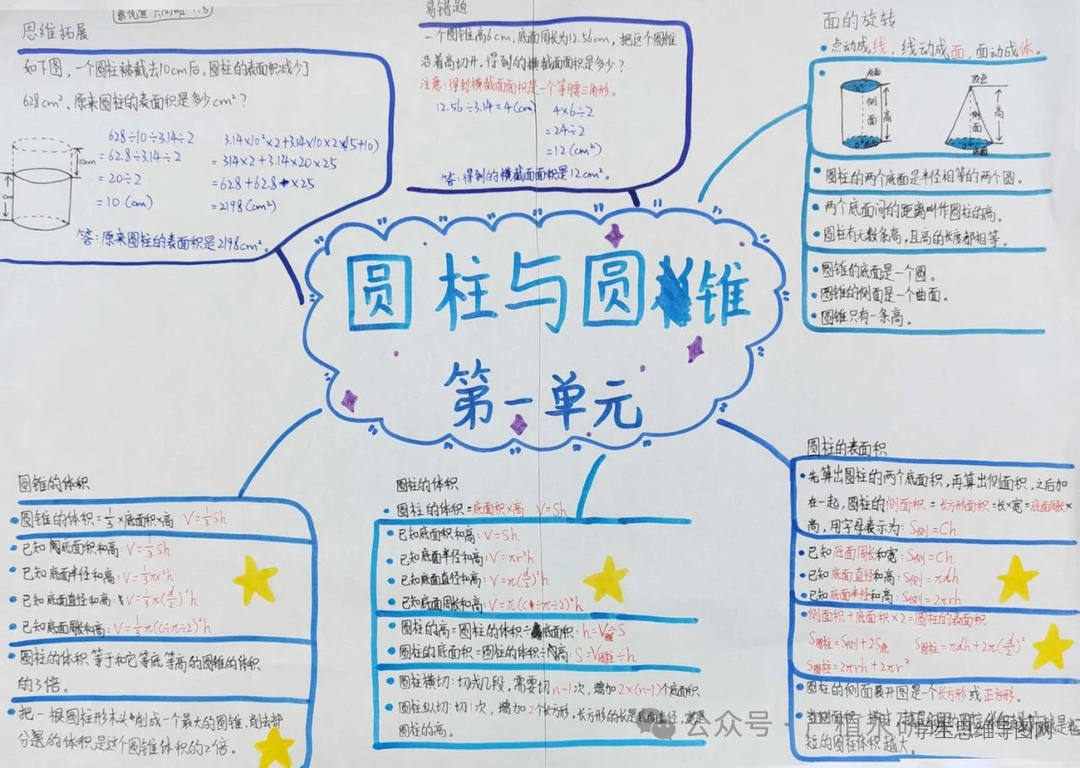 思维拓展
如下图，一个圆柱被截去10cm后，圆柱的表面积减少了
628cm²，原来圆柱的表面积是多少cm²？
10cm
628÷10÷3.14÷2
=62.8÷3.14÷2
=20÷2
=10(cm)
3.14×10²×2+3.14×10×2×(15+10)
=314×2+3.14×20×25
=628+62.8×25
=2198(cm²)
答：原来圆柱的表面积是2198cm²。
易错题
一个圆锥高6cm，底面周长为12.56cm，把这个圆锥
沿着高切开，得到的横截面面积是多少？
注意：得到横截面面积是一个等腰三角形。
12.56÷3.14=4(cm)
4×6÷2
=24÷2
=12(cm²)
答：得到的横截面面积是12cm²。
面的旋转
点动成线，线动成面，面动成体。
底面
侧面
高
底面
顶点
侧面
高
底面
圆柱的两个底面是半径相等的两个圆。
两个底面间的距离叫作圆柱的高。
圆柱有无数条高，且高的长度都相等。
圆锥的底面是一个圆。
圆锥的侧面是一个曲面。
圆锥只有一条高。
圆柱与圆锥
第一单元
圆锥的体积
圆锥的体积=1/3×底面积×高 V=1/3Sh
已知底面积和高：V=1/3Sh
已知底面半径和高：V=1/3πr²h
已知底面直径和高：V=1/3π(d/2)²h
已知底面周长和高：V=1/3π(C÷π÷2)²h
圆柱的体积等于和它等底等高的圆锥的体积
的3倍。
把一根圆柱形木头削成一个最大的圆锥，削去部
分的体积是这个圆锥体积的2倍。
圆柱的体积
圆柱的体积=底面积×高 V=Sh
已知底面积和高：V=Sh
已知底面半径和高：V=πr²h
已知底面直径和高：V=π(d/2)²h
已知底面周长和高：V=π(C÷π÷2)²h
圆柱的高=圆柱的体积÷底面积：h=V÷S
圆柱的底面积=圆柱的体积÷高 S=V圆柱÷h
圆柱横切：切成几段，需要切n-1次，增加2×(n-1)个底面积
圆柱纵切：切1次，增加2个长方形，长方形的长是底面直径，宽是
圆柱的高。
圆柱的表面积
先算出圆柱的两个底面积，再算出侧面积，之后加
在一起，圆柱的侧面积=长方形面积=长×宽=底面周长×
高，用字母表示为：S侧=Ch
已知底面周长和宽 S侧=Ch
已知底面直径和高：S侧=πdh
已知底面半径和高：S侧=2πrh
侧面积+底面积×2=圆柱的表面积
S圆柱=S侧+2S底 S圆柱=πdh+2π(d/2)²
S圆柱=2πrh+2πr²
圆柱的侧面展开图是个长方形或正方形。
短的圆柱体积越大。
公众号
学生思维导图网